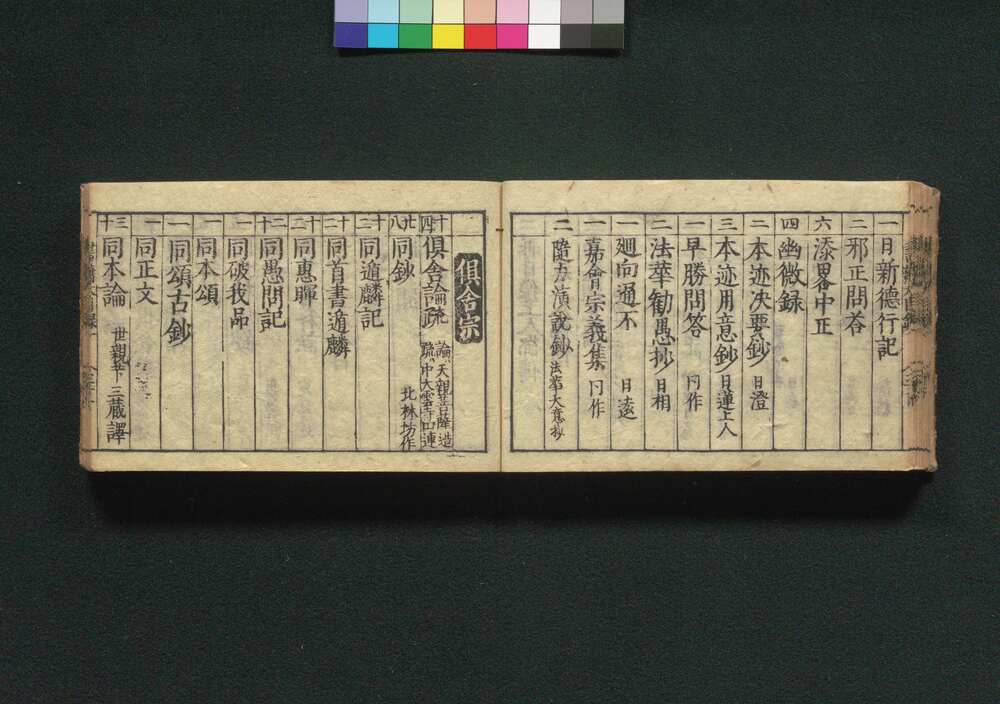 一 日新德行記
二 邪正問答
六 漆畧中正
四 幽微録
二 本迹决要鈔 日澄
三 本迹用意鈔 日蓮上人
一 早勝問答 円作
二 法華勧愚抄 日相
一 廻向通不 日遠
一 嘉會宗義集 円作
二 隨方演說鈔 法華大意抄
俱舍宗
十四 俱舍論疏 論、天親菩 造 疏、中大雲寺
廿八 同鈔 北林坊作
十二 同遁麟記
十二 同首書遁麟
十二 同惠暉
二十 同愚問記
一 同破我品
一 同本頌
一 同頌古鈔
一 同正文
三十 同本論 世親菩 三蔵譯